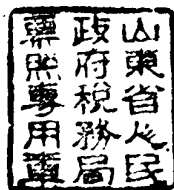 山東省人民
政府税務局
票照專用章